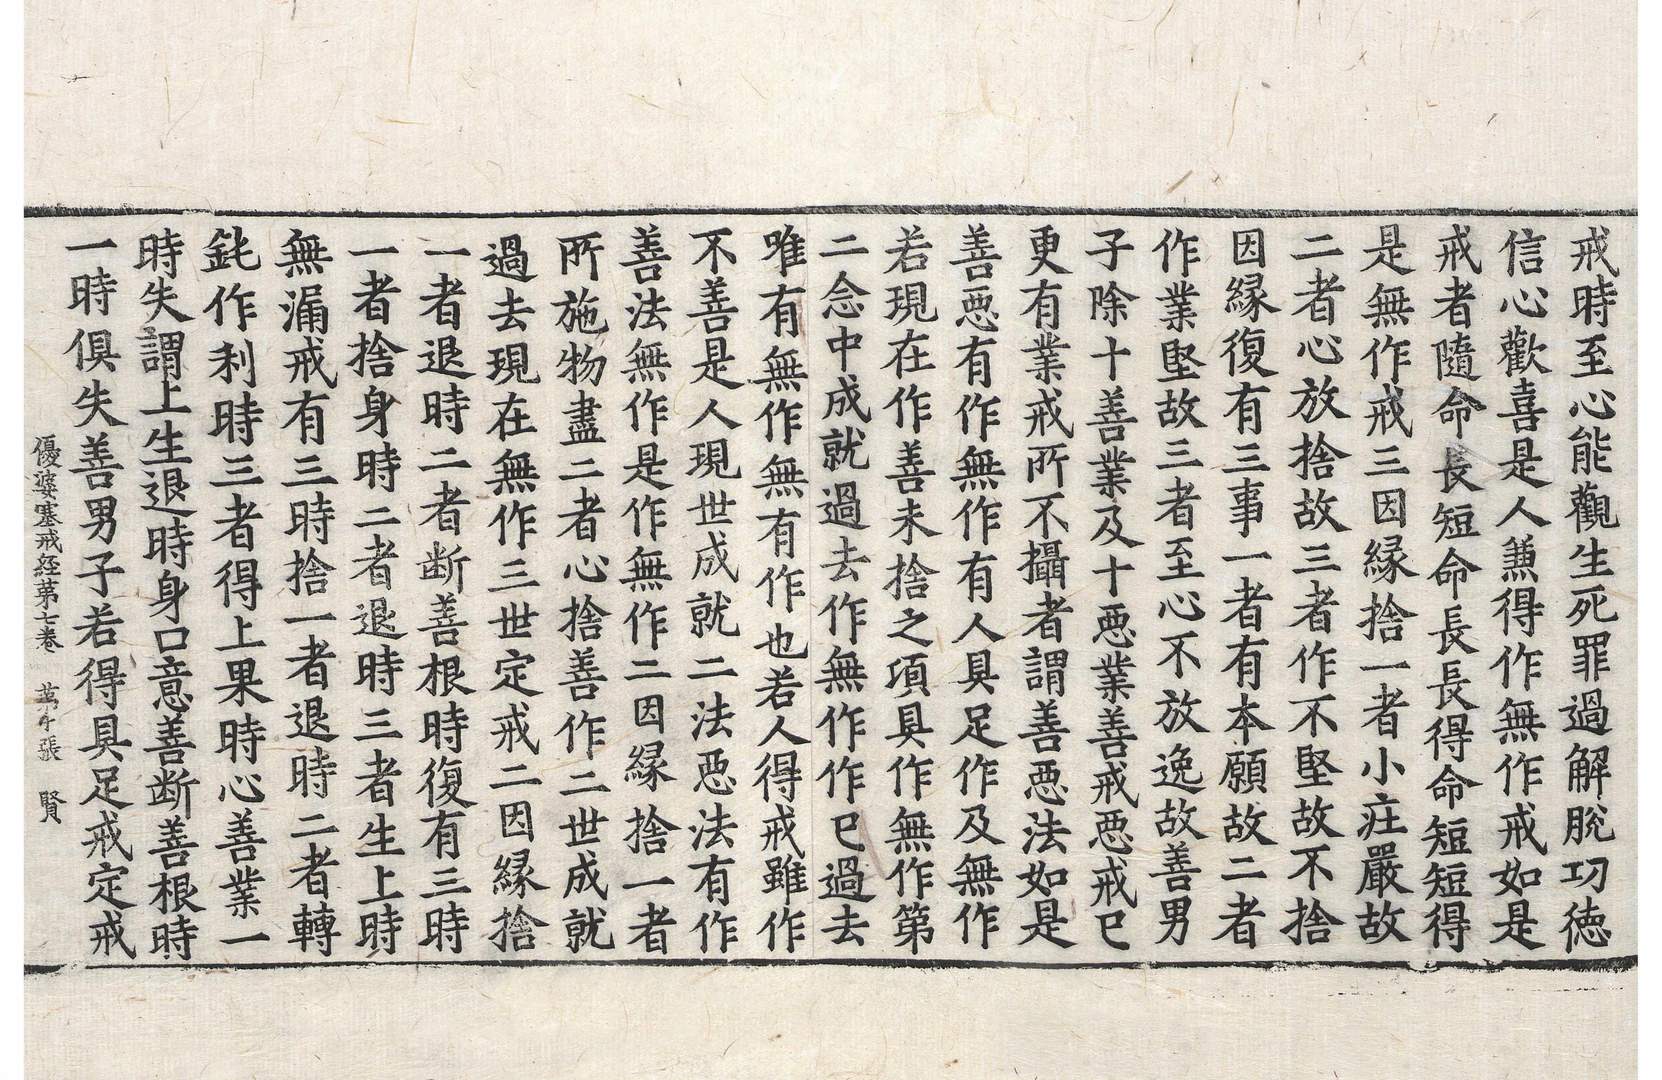 戒時至心能觀生死罪過解脫功徳
信心歡喜是人兼得作無作戒如是
戒者隨命長短命長長得命短短得
是無作戒三因縁捨一者小庄嚴故
二者心放捨故三者作不堅故不捨
因縁復有三事一者有本願故二者
作業堅故三者至心不放逸故善男
子除十善業及十惡業善戒惡戒已
更有業戒所不攝者謂善惡法如是
善惡有作無作有人具足作及無作
若現在作善未捨之項具作無作第
二念中成就過去作無作作已過去
唯有無作無有作也若人得戒雖作
不善是人現世成就二法惡法有作
善法無作是作無作二因縁捨一者
所施物盡二者心捨善作二世成就
過去現在無作三世定戒二因縁捨
一者退時二者断善根時復有三時
一者捨身時二者退時三者生上時
無漏戒有三時捨一者退時二者轉
鈍作利時三者得上果時心善業一
時失謂上生退時身口意善断善根時
一時俱失善男子若得具足戒定戒
優婆塞戒経苐七卷　張　賢